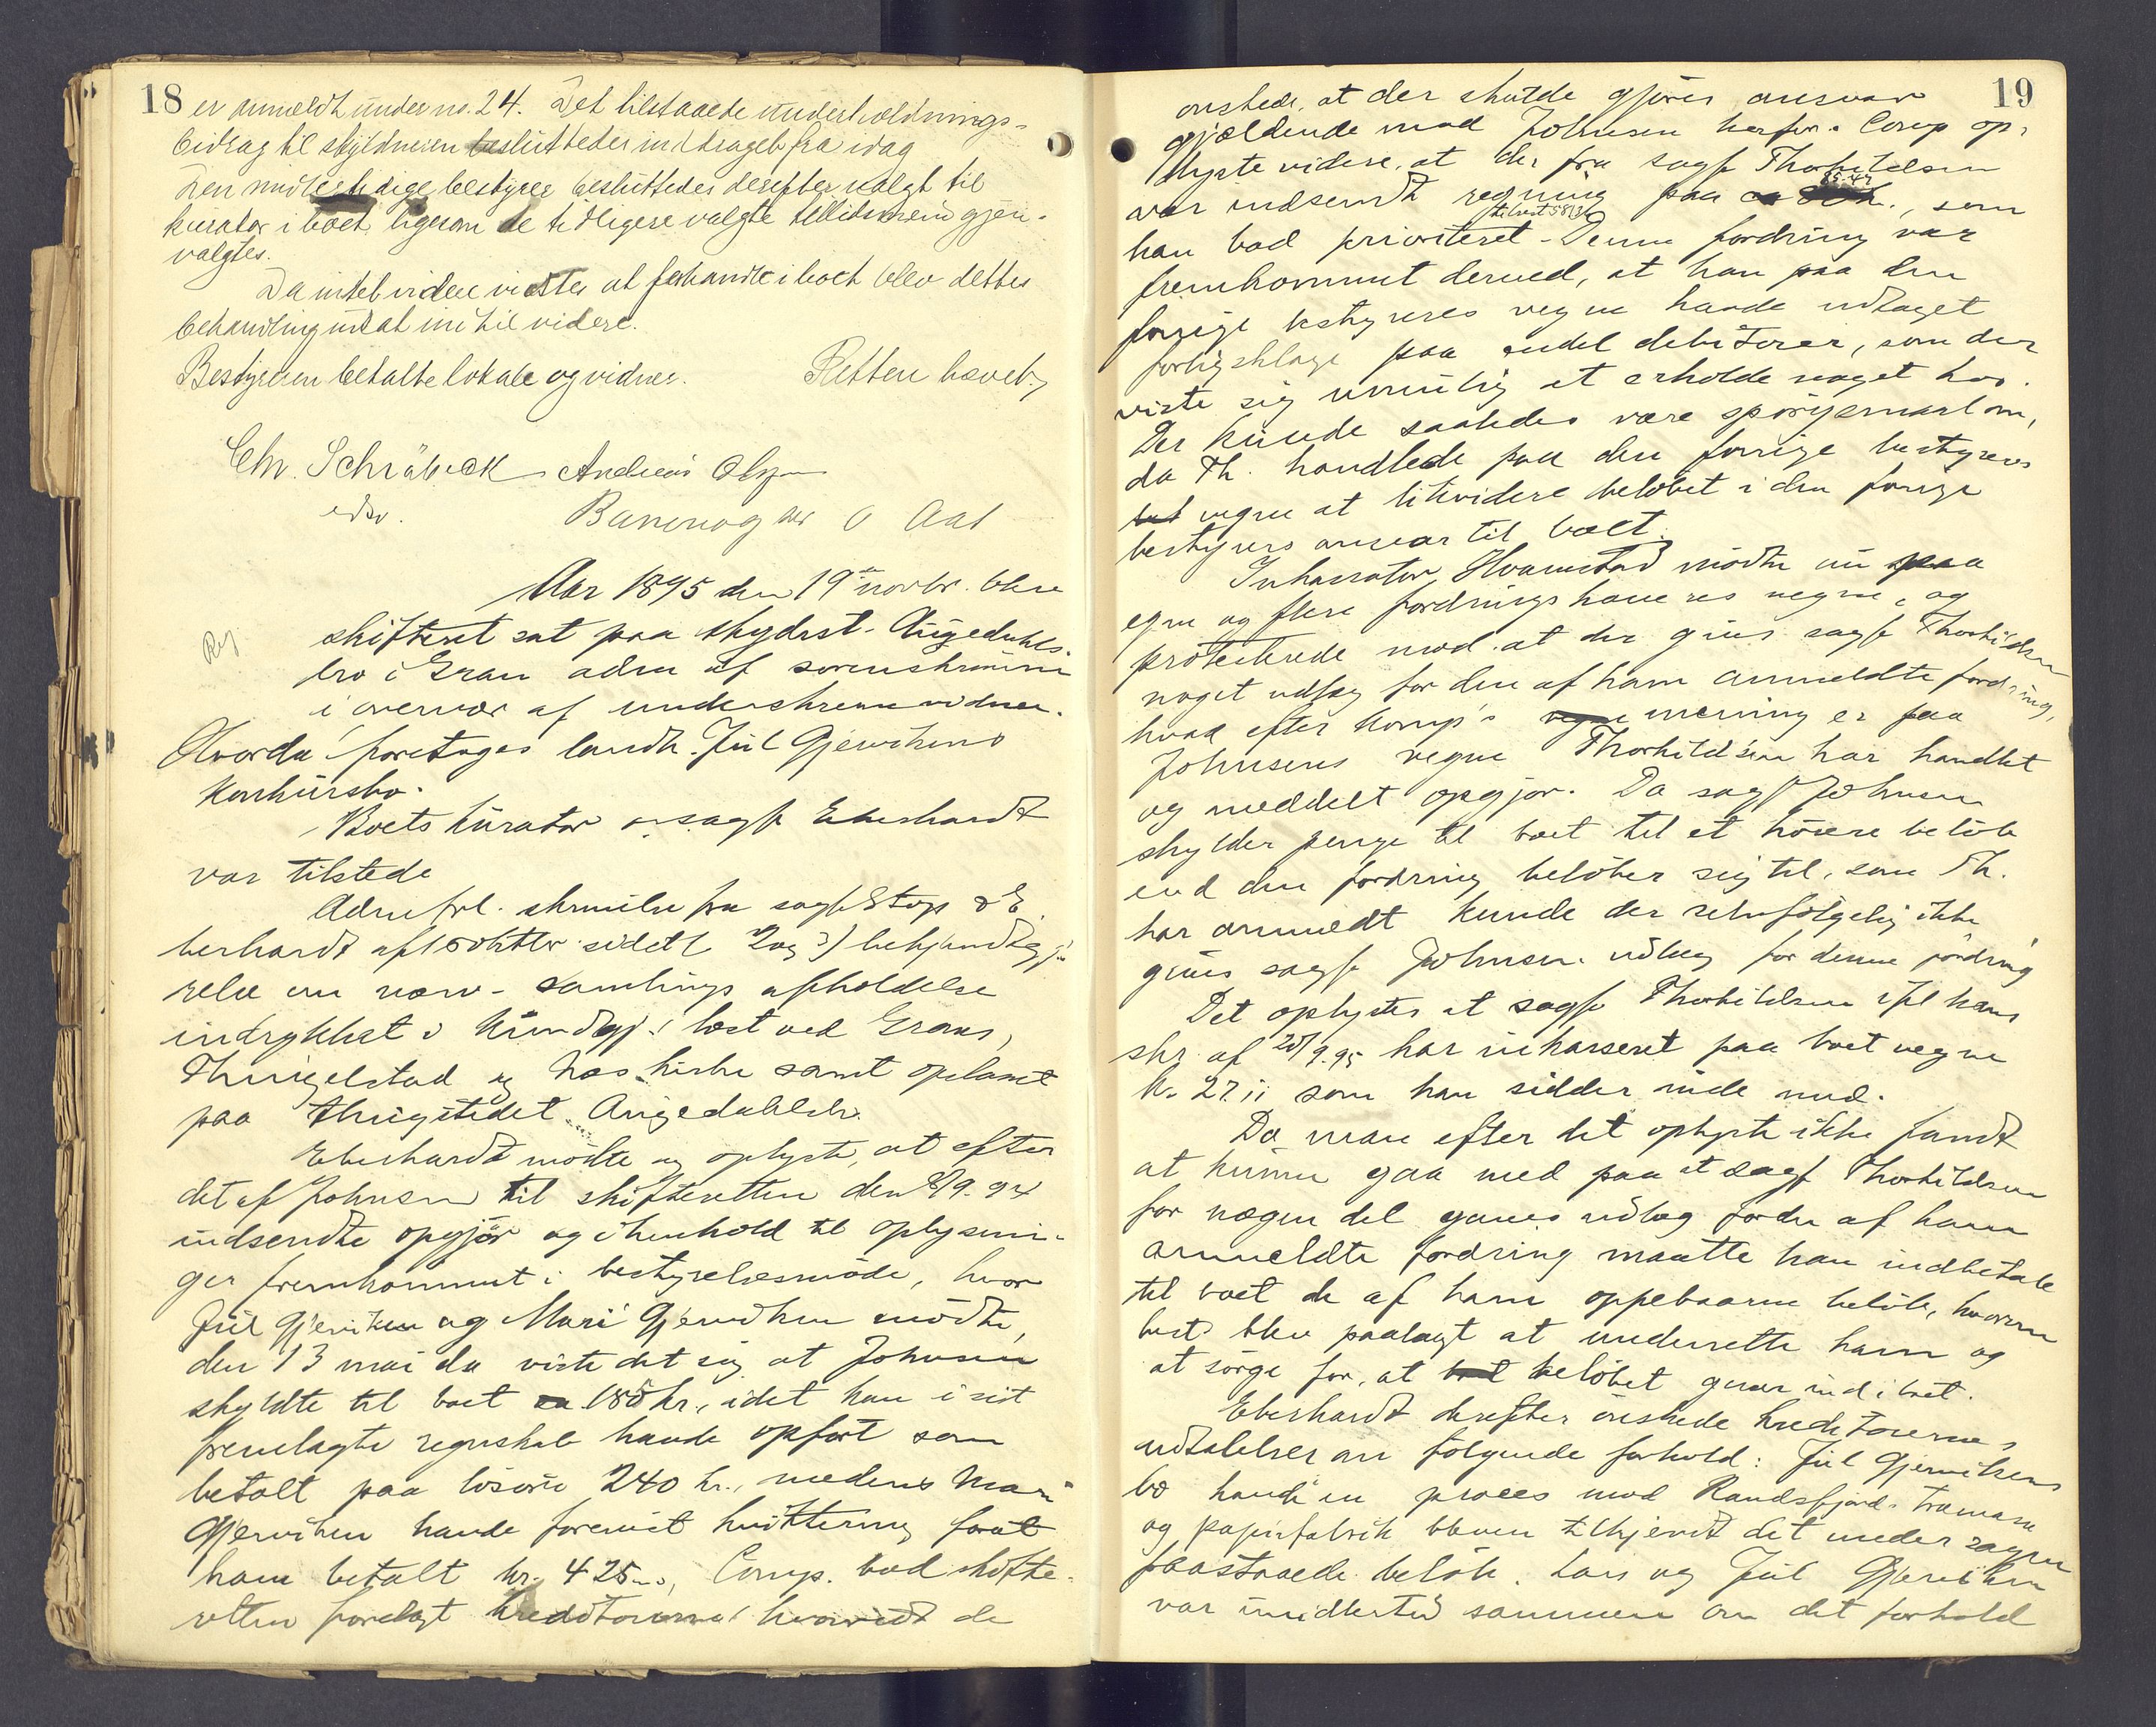 18
er anmeldt under no. 24. Det tilstaaede underholdnings-
bidrag til skyldneren besluttedes inddraget fra idag
Den midlertidige bestyrer besluttedes derefter valgt til
kurator i boet, ligesom de tidligere valgte tillidsmænd gjen-
valgtes.
Da intet videre vidstes at forhandle i boet blev dettes
behandling udsat indtil videre.
Bestyreren betalte lokale og vidner. Retten hævet.
Chr. Schräbeck Andreas Olsen
edsv.
Aar 1895 den 19de novbr. blev
skifteret sat paa skydsst. Augedals-
bro i Gran adm af sorenskriveren
i overvær af underskrevne vidner.
Hvorda foretages landh. Juul Gjerviken's
konkursbo.
Boets kurator sagf Eberhardt
var tilstede
Adm frl. skrivelse fra sagf Stop & E
berhardt af 15 oktbr sidstl 2og 3) bekjendtgjø-
relse om nærv. samlings afholdelse
indrykket i Kundgj. læst ved Grans,
Thingelstad og Næs kirke samt opslaaet
paa thingstedet Augedalsbr.
Eberhardt mødte og oplyste, at efter
det af Johnsen til skifteretten den 8/9. 94
indsendte opgjør og i henhold til oplysnin-
ger fremkommet i bestyrelsesmøde, hvor
Juul Gjerviken og Mari Gjerviken mødte,
den 13 mai da viste det sig at Johnsen
skyldte til boet ca 185 kr., idet han i sit
fremlagte regnskab havde opført som
betalt paa løsøre 240 kr., medens Mari
Gjerviken havde forevist kvittering for at
ham betalt kr. 425.00, Comp. bad skifte-
retten forelagt kreditorerne hvorvidt de
19
ønskede, at der skulde gjøres ansvar
gjældende mod Johnsen herfor. Comp op-
lyste videre, at der fra sagf Thorkildsen
var indsendt regning paa 85.47, som
han bad prioriteret. Denne fordring var
fremkommet derved, at han paa den
forrige bestyrers vegne havde udtaget
forligsklage paa endel debitorer, som det
viste sig umulig at erholde noget hos.
Der kunde saaledes være spørgsmaal om,
da Th. handlede paa den forrige bestyrers
vegne at likvidere beløbet i den forrige
bestyrers ansvar til boet.
Inkassator Hvamstad mødte nu paa
egne og flere fordringshaveres vegne, og
protesterede mod at der gives sagf Thorkildsen
noget udlæg for den af ham anmeldte fordring,
hvad efter Komp's mening er paa
Johnsens vegne Thorkildsen har handlet
og meddelt opgjør. Da sagf Johnsen
skylder penge til boet til et høiere beløb
end den fordring beløber sig til, som Th.
har anmeldt kunde der selvfølgelig ikke
gives sagf Johnsen udlæg for denne fordring
Det oplystes at sagf Thorkildsen ifl hans
skr. af 20/9.95 har inkasseret paa boet vegne
kr. 27.11 som han sidder inde med.
Da man efter det oplyste ikke fandt
at kunne gaa med paa at sagf Thorkildsen
for nogen del gaves udlæg for den af ham
anmeldte fordring maatte han indbetale
til boet de af ham oppebaarne beløb, hvorom
best. blev paalagt at underrette ham og
at sørge for, at beløbet gaar ind i boet.
Eberhardt derefter ønskede kreditorernes
udtalelser om følgende forhold: Juul Gjervikens
bo havde en proces mod Randsfjord Træmasse
og papirfabrik bleven tilkjendt det under sagen
paastaaede beløb. Lars og Juul Gjerviken
var imidlertid sammen om det forhold